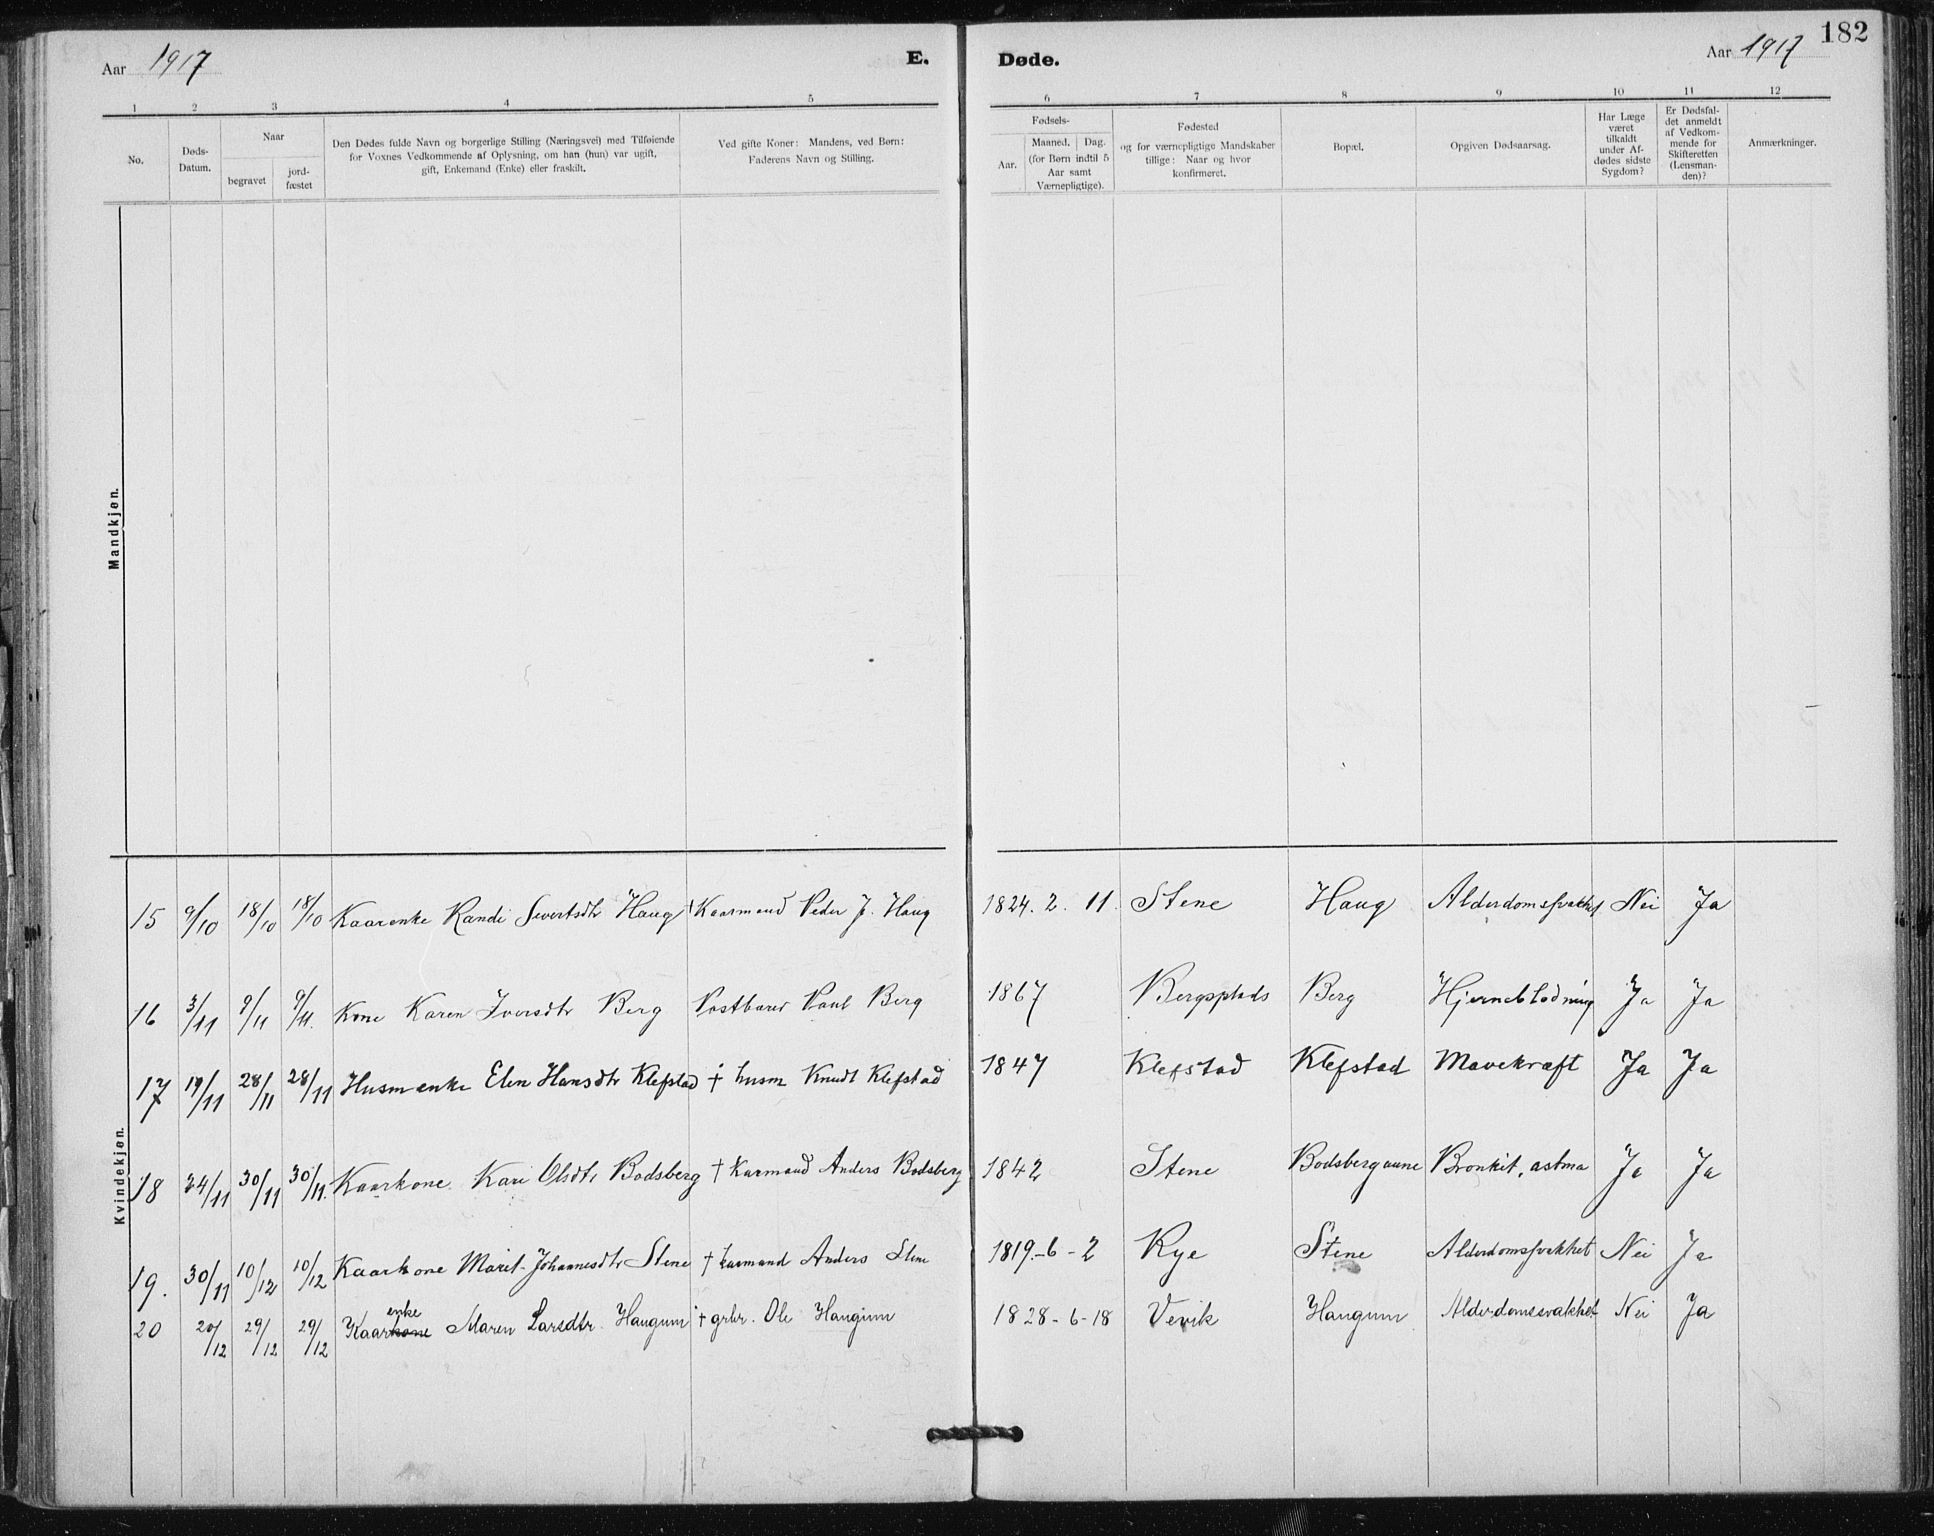 Aar 1917
E.
Døde.
Aar 1917
182
1 2 3 4 5 6 7 8 9 10 11 12
No.
Døds-
Datum.
Naar
begravet
jord-
fæstet
Den Dødes fulde Navn og borgerlige Stilling (Næringsvei) med Tilføiende
for Voxnes Vedkommende af Oplysning, om han (hun) var ugift,
gift, Enkemand (Enke) eller fraskilt.
Ved gifte Koner: Mandens, ved Børn:
Faderens Navn og Stilling.
Fødsels-
Aar.
Maaned. Dag.
(for Børn indtil 5
Aar samt
Værnepligtige).
Fødested
og for værnepligtige Mandskaber
tillige: Naar og hvor
konfirmeret.
Bopæl.
Opgiven Dødsaarsag.
Har Læge
været
tilkaldt
under Af-
dødes sidste
Sygdom?
Er Dødsfal-
det anmeldt
af Vedkom-
mende for
Skifteretten
(Lensman-
den)?
Anmærkninger.
Mandkjøn.
Kvindekjøn.
15 9/10 18/10 18/10 Kaarenke Randi Sivertsdtr Haug Kaarmand Peder J. Haug 1824. 2. 11. Stene Haug Alderdomssvakhet Nei Ja
16 3/11 9/11 9/11. Kone Karen Iversdtr Berg Postbarer Paul Berg 1867 Bergsplads Berg Hjerneblødning Ja Ja
17 19/11 28/11 28/11 Husmenke Elen Hansdtr Klefstad † husm Knudt Klefstad 1847 Klefstad Klefstad Mavekræft Ja Ja
18 24/11 30/11 30/11. Kaarkone Kari Olsdtr Bodsberg † Karmand Anders Bodsberg 1842 Stene Bodsbergaune Bronkit, astma Ja Ja
19. 30/11 10/12 10/12 Kaarkone Marit Johannesdtr Stene † karmand Anders Stene 1819.-6-2 Kye Stene Alderdomssvakhet Nei Ja
enke
20 20/12 29/12 29/12 Kaarkone Maren Larsdtr. Haugum † grbr. Ole Haugum 1828-6-18 Vevik Haugum Alderdomssvakhet Nei Ja